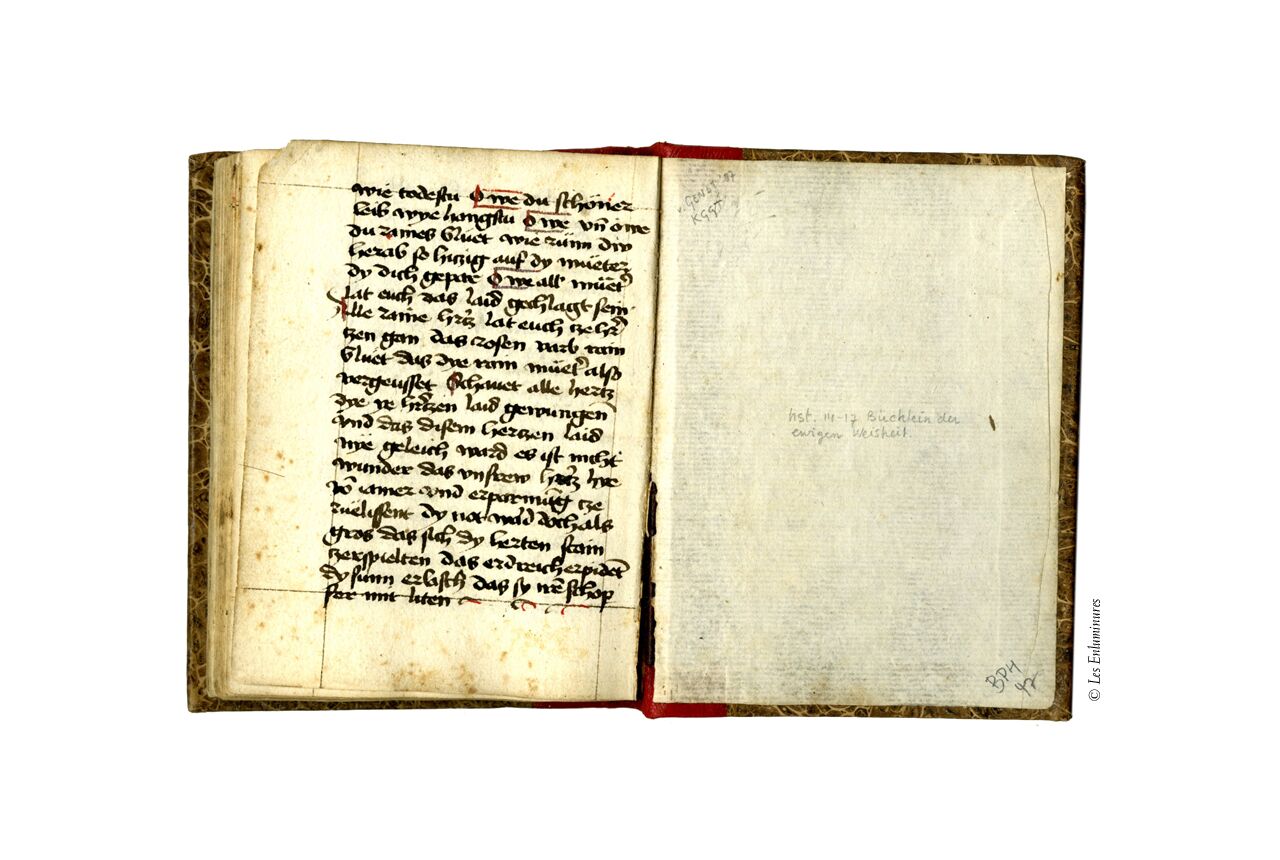 wie todestu O we du schöner
leib wye hangstu O we vn̄ owe
du raines bluet wie rünn div
herab so hitzig auf dy mueter
dy dich gepar O we all muet̄
lat euch das laid gechlagt sein
Alle raine hr̄tz lat euch ze hr̄
tzen gan das rosen varb rain
bluet das dye rain muet̄ also
vergeusset Schauet alle hertz
dye ye hr̄tzen laid gewungen̄
vnd das disem hertzen laid
nye geleich ward es ist nicht
wunder das vnsrew hr̄tz hye
vō iamer vnd erparmūg tze
dy not ward doch als
gros das sich dy herten stain
zerspielten das erdreich erpidet̄
dy sunn erlasch das sy irē schop
fer mit liten
KGGT
hst. 14-17 Büchlein der
ewigen Weisheit.
BPH
47
© Les Enluminures